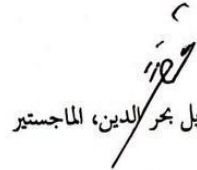 يل بحر الدين، الماجستير